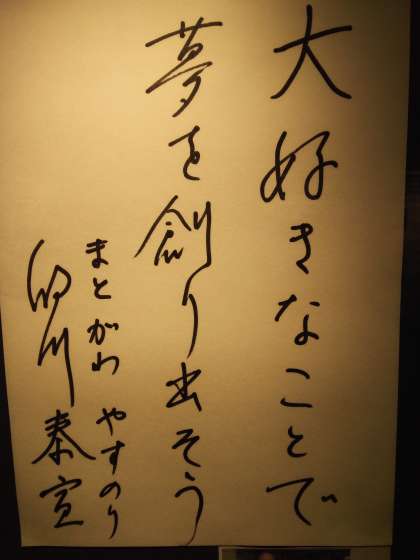 大好きなことで
夢を創り出そう
まとがわ やすのり
的川泰宣